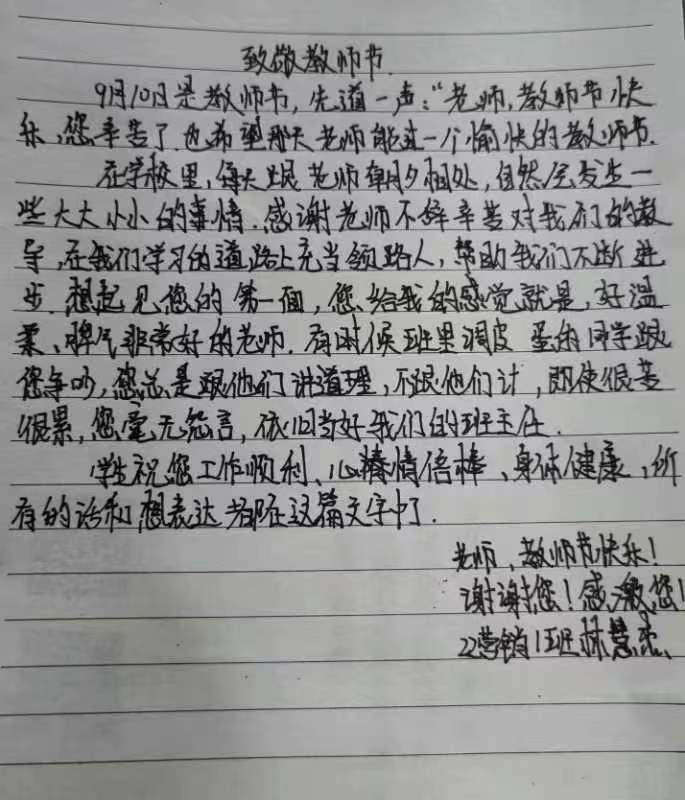 致敬教师节
9月10日是教师节，先道一声："老师，教师节快
乐，您辛苦了.也希望那天老师能过一个愉快的教师节.
在学校里，每天跟老师朝夕相处，自然会发生一
些大大小小的事情.感谢老师不辞辛苦对我们的教
导，在我们学习的道路上充当领路人，帮助我们不断进
步.想起见您的第一面，您给我的感觉就是，好温
柔、脾气非常好的老师.有时候班里调皮蛋的同学跟
您争吵，您总是跟他们讲道理，不跟他们计，即使很苦
很累，您毫无怨言，依旧当好我们的班主任.
学生祝您工作顺利、心情倍棒、身体健康，所
有的话和想表达都在这篇文字中了.
老师，教师节快乐！
谢谢您！感激您！
22营销1班林慧